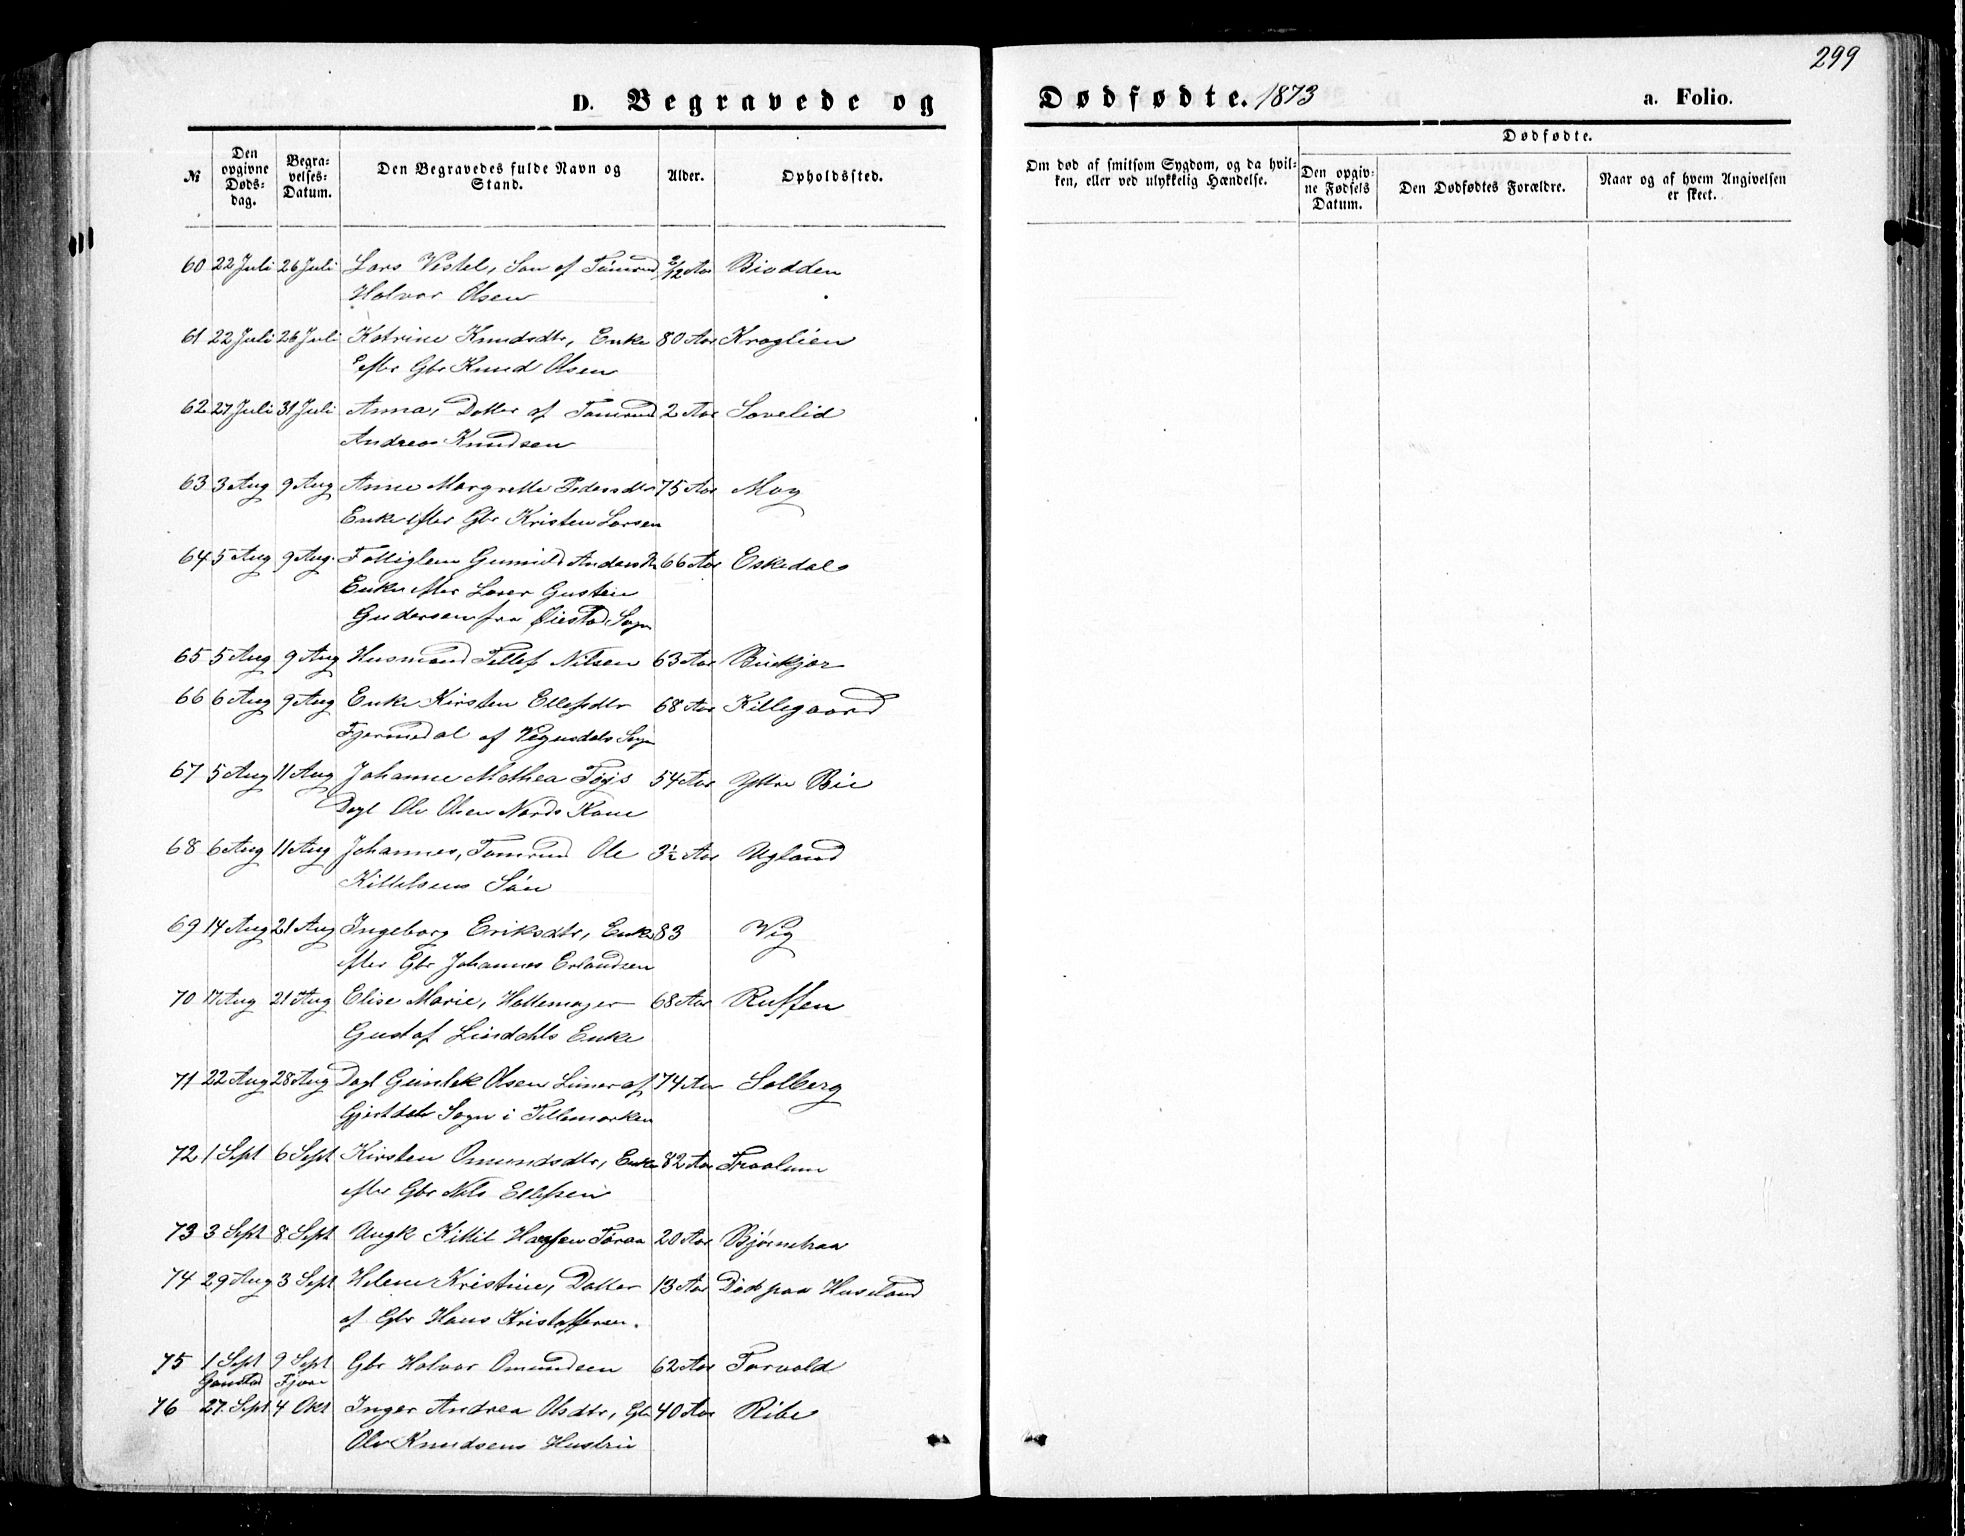 299
D. Begravede og Dødfødte. 1873 a. Folio.
№
Den opgivne Døds-dag.
Begra-velses-Datum.
Den Begravedes fulde Navn og Stand.
Alder.
Opholdsted.
Om død af smitsom Sygdom, og da hvil-
ken, eller ved ulykkelig Hændelse.
Dødfødte.
Den opgiv-
ne Fødsels
Datum.
Den Dødfødtes Forældre.
Naar og af hvem Angivelsen
er skeet.
60 22 Juli 26 Juli Lars Vestel, Søn af Tømrmd 2/12 Aar Biodden
Halvor Olsen
61 22 Juli 26 Juli Katrine Knudsdtr, Enke 80 Aar Kraglien
efter Gbr Knud Olsen
62 27 Juli 31 Juli Anna, Datter af Tømrmd 2 Aar Sovelid
Andreas Knudsen
63 3 Aug 9 Aug Anne Margrethe Pedersdtr 75 Aar Moy
Enke efter Gbr Kristen Larsen
64 5 Aug 9 Aug. Fattiglem Gunnild Andersdtr 66 Aar Eskedal
Enke efter Gustein
Gundersen fra Øiestad Sogn
65 5 Aug 9 Aug Husmand Tellef Nilsen 63 Aar Birkjær
66 6 Aug 9 Aug Enke Kirsten Ellefsdtr 68 Aar Killegaard
Fjermedal af Vegusdals Sogn
67 5 Aug 11 Aug Johanne Mathea 54 Aar Yttre Bie
Dagl Ole Olsen Kone
68 6 Aug 11 Aug Johannes, Tømrmd Ole 3½ Aar Ugland
Kittelsens Søn
69 14 Aug 21 Aug Ingeborg Eriksdtr, Enke 83 Vig
efter Gbr Johannes Erlandsen
70 17 Aug 21 Aug Elise Marie, Hattemager 68 Aar Ruffen
Gustaf Lindahls Enke
71 22 Aug 28 Aug Dagl Gunlek Olsen af 74 Aar Solberg
Sogn i Tellemarken
72 1 Sept 6 Sept Kirsten Omundsdtr, Enke 82 Aar Traalum
efter Gbr Nils Ellefsen
73 3 Sept 8 Sept Ungk Kittil Hansen Toraa 20 Aar Bjørnehaa
74 29 Aug 3 Sept Helene Kristine, Datter 13 Aar Død paa Huseland
af Gbr Hans Kristoffersen.
75 1 Sept 9 Sept Gbr Halvor Omundsen 62 Aar Torvold
Fjære
76 27. Sept 4 Okt Inger Andrea Olsdtr, Gbr 40 Aar Ribe
Ole Knudsens Hustru